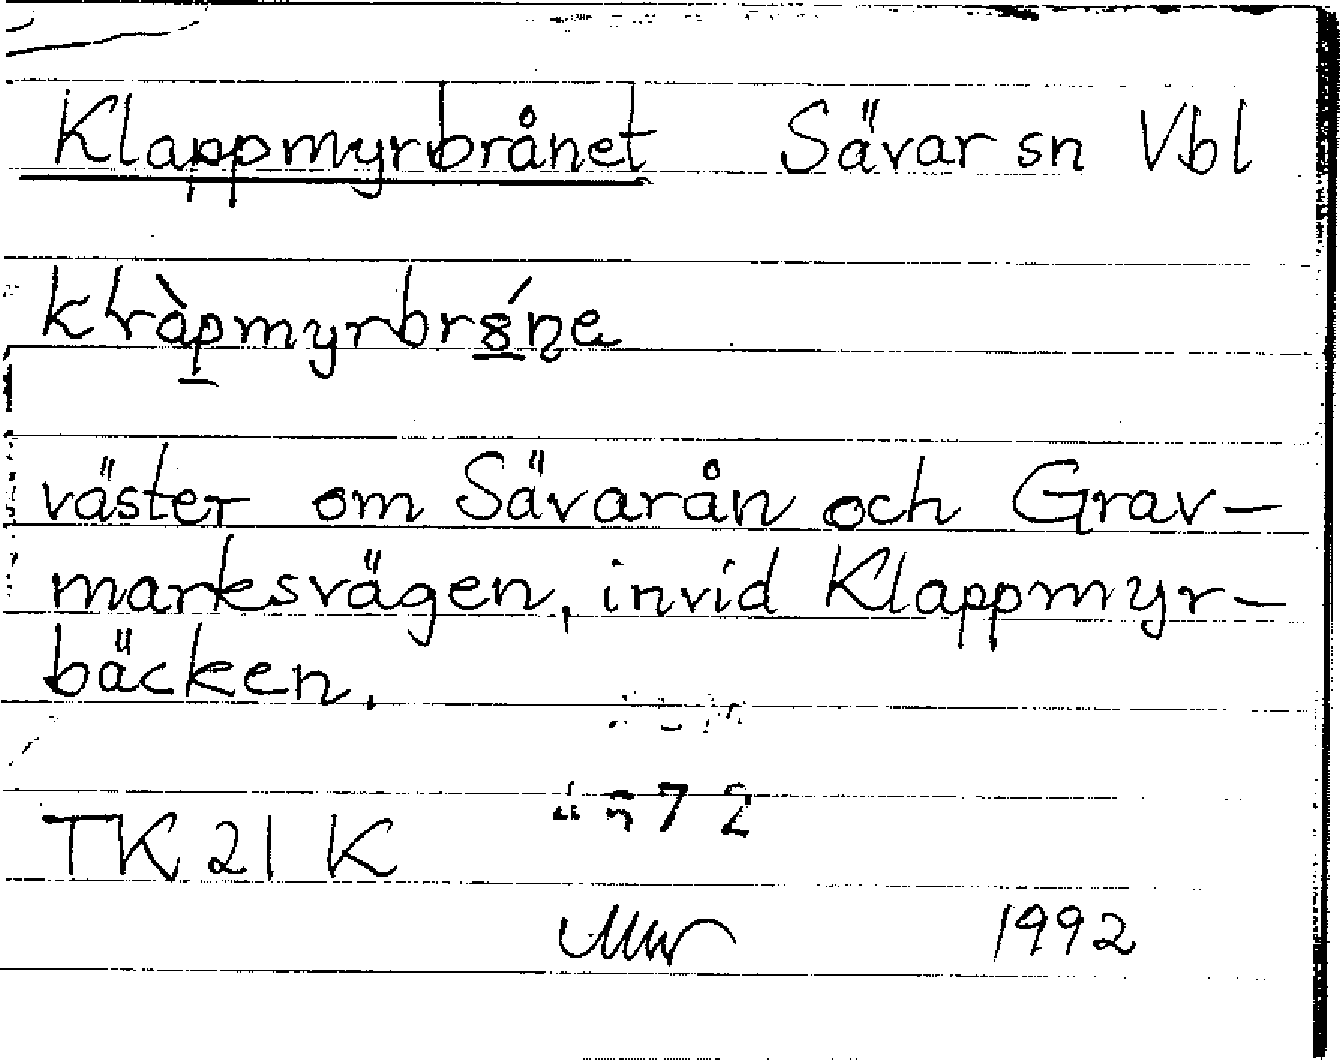 Klappmyrbrånet Sävar sn Vbl
väster om Sävarån och Grav-
marksvägen, invid Klappmyr-
bäcken.
TK 21 K
1992